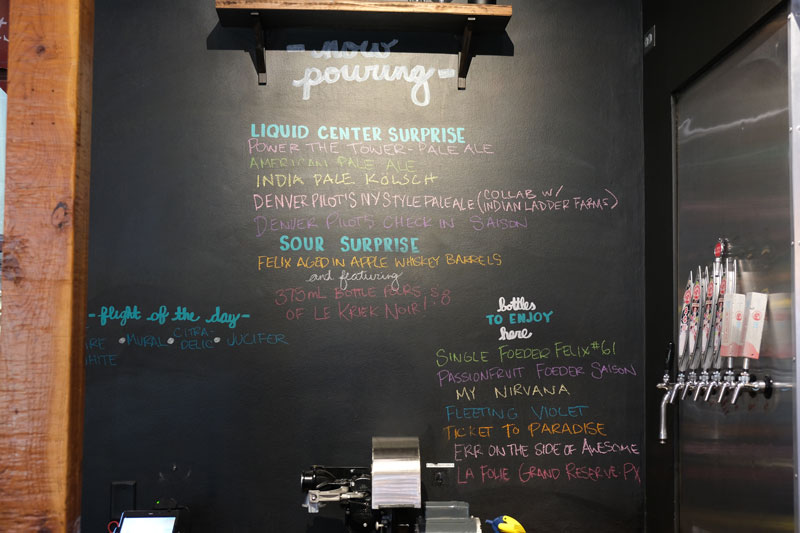 - now
pouring -
LIQUID CENTER SURPRISE
POWER THE TOWER - PALE ALE
AMERICAN PALE ALE
INDIA PALE KÖLSCH
DENVER PILOT'S NY STYLE PALE ALE (COLLAB W/ INDIAN LADDER FARMS)
DENVER PILOT'S CHECK IN SAISON
SOUR SURPRISE
FELIX AGED IN APPLE WHISKEY BARRELS
and featuring
375ML BOTTLE POURS, $8
OF LE KRIEK NOIR!
- flight of the day -
• MURAL • CITRA-DELIC • JUCIFER
HITE
bottles
TO ENJOY
here
SINGLE FOEDER FELIX #61
PASSIONFRUIT FOEDER SAISON
MY NIRVANA
FLEETING VIOLET
TICKET TO PARADISE
ERR ON THE SIDE OF AWESOME
LA FOLIE GRAND RESERVE PX